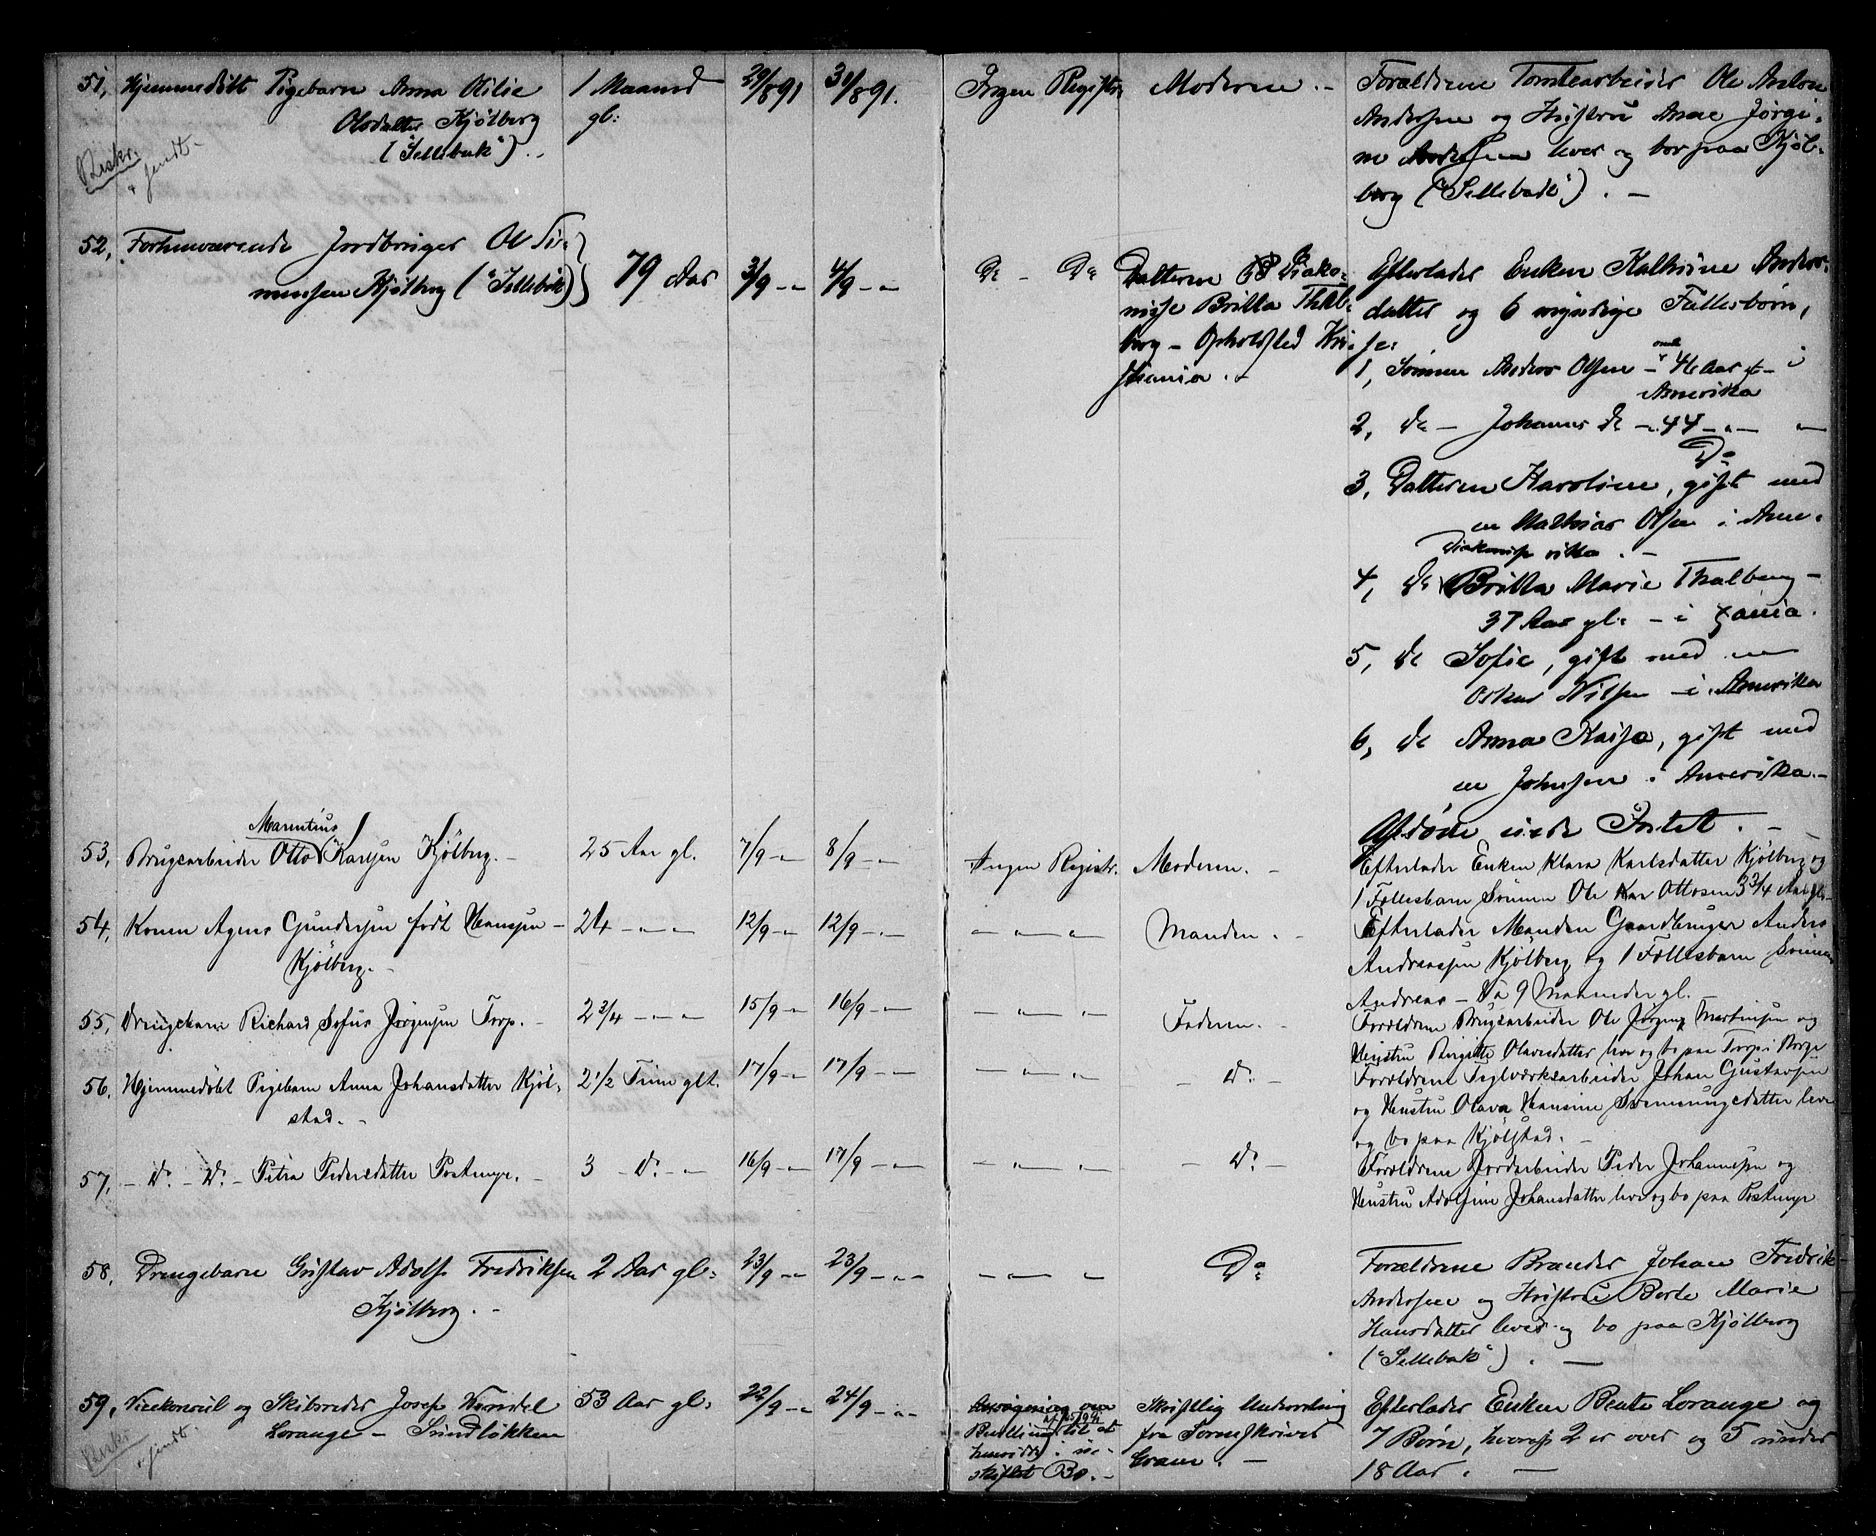 51, Hjemmedöbt Pigebarn Anna Otilie
Olsdatter Kjölberg
("Sellebak"). -
Beskr.
fendt -
1 Maaned
gl:
29/8 91
31/8 91.
Ingen Registr.
Moderen. -
Forældrene Tomtearbeider Ole Anton
Andersen og Hustru Anne Jörgi-
ne Andersen lever og bor paa Kjöl-
berg ("Sellebak"). -
52, Forhenværende Jordbruger Ole Si-
mensen Kjölberg ("Sellebak")
79 Aar
3/9 - "-
4/9 - "-
Do - Do
Datteren Diako-
nisse Britta Thal-
berg - Opholdsted Kri-
stiania. -
Efterlader Enken Kathrine Anders-
datter og 6 myndige Fællesbörn,
se:
1, Sönnen Anders Olsen - 46 Aar gl - i
Amerika
2, do - Johannes do - 44 - " - "
Do
3, Datteren Karoline, gift med
en Mathias Olsen i Ame-
rika. -
Diakonisse
4, do Britta Marie Thalberg -
37 Aar gl: - i Xania.
5, do Sofie, gift med en
Oskar Nilsen - i Amerika
6, do Anna Kaisa, gift med
en Johnsen i Amerika. -
Afdöde under Fostet. -
53, Brugsarbeider Otto Karlsen Kjölberg. -
Marentius
25 Aar gl.
7/9 - "-
8/9 - "-
Ingen Registr.
Moderen. -
Efterlader Enken Klara Karlsdatter Kjölberg og
1 Fællesbarn Sönnen Ole Kar Ottosen 3 3/4 Aar gl. -
54, Konen Agnes Gundersen födt Hansen -
Kjölberg. -
24 - " -
12/9 - "-
12/9 - "-
- " - "
Manden. -
Efterlader Manden Gaardbruger Anders
Andreassen Kjölberg og 1 Fællesbarn Sönnen
Andreas - 8 a 9 Maaneder gl. -
55, Drengebarn Richard Sofus Jörgensen Torp. -
2 3/4 - " -
15/9 - "-
16/9 - "-
- " - "
Faderen. -
Forældrene Brugsarbeider Ole Jörgen Martinsen og
Hustru Birgitte Olavesdatter lever og bo paa Torp i Borge
56. Hjemmedöbt Pigebarn Anna Johansdatter Kjöl-
stad. -
2 1/2 Time glt.
17/9 - "-
17/9 - "-
- " - "
- Do -
Forældrene Teglværksarbeider Johan Gustavsen
og Hustru Olava Hansine Svenningsdatter leve
og bo paa Kjölstad. -
57, - Do - Do - Petra Pedersdatter Postmyr. -
3 - Do - "-
16/9 - "-
17/9 - "-
- " - "
- Do -
Forældrene Jordarbeider Peder Johannesen og
Hustru Adolfine Johansdatter leve og bo paa Postmyr
58, Drengebarn Gustav Adolf Fredriksen
Kjölberg. -
2 Aar gl:
23/9 - "-
23/9 - "-
- " - "
Do
Forældrene Brænder Johan Fredrik
Andersen og Hustru Berte Marie
Hansdatter lever og bo paa Kjölberg
("Sellebak"). -
59, Vicekonsul og Skibsreder Josef Wendel
Lorange - Sundlökken
Beskr.
fendt.
53 Aar gl:
22/9 - "-
24/9 - "-
Bevilling til at
hensidde i u-
skiftet Bo. -
Skriftlig Underretning
fra Sorenskriver
Gram. -
Efterlader Enken Beate Lorange og
7 Börn, hvoraf 2 er over og 5 under
18 Aar. -